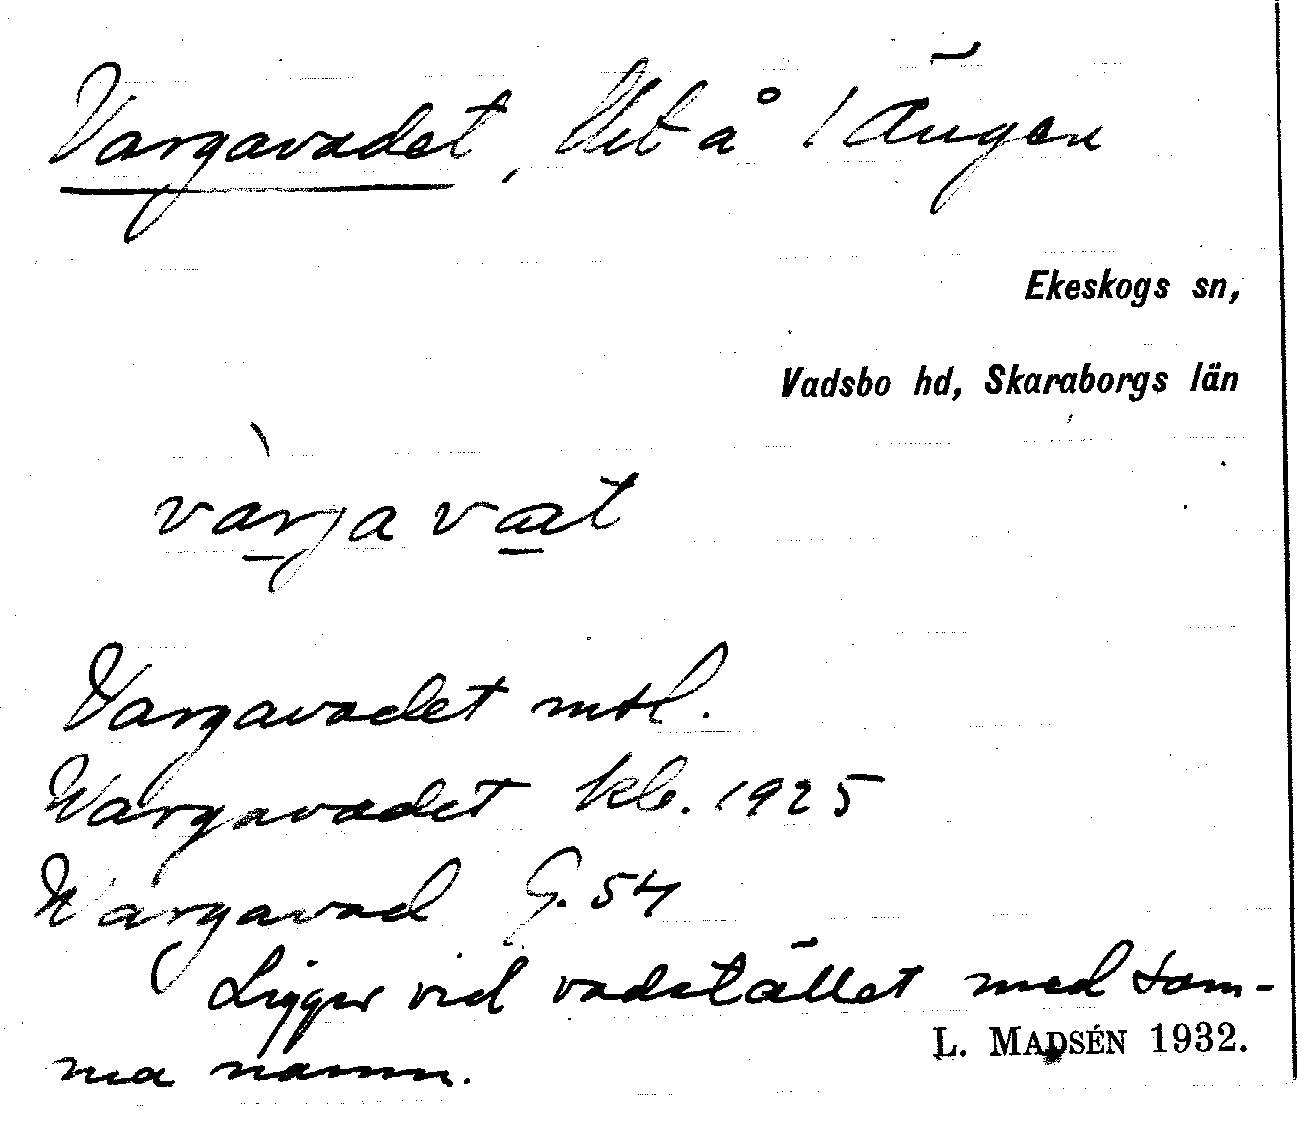 Vargavadet, lht å 1 Ängen
Ekeskogs sn,
Vadsbo hd, Skaraborgs län
vàrja vat
Vargavadet mtl.
Wargavadet kb. 1925
Wargavad G. 54
Ligger vid vadstället med sam-
L. MADSÉN 1932.
ma namn.